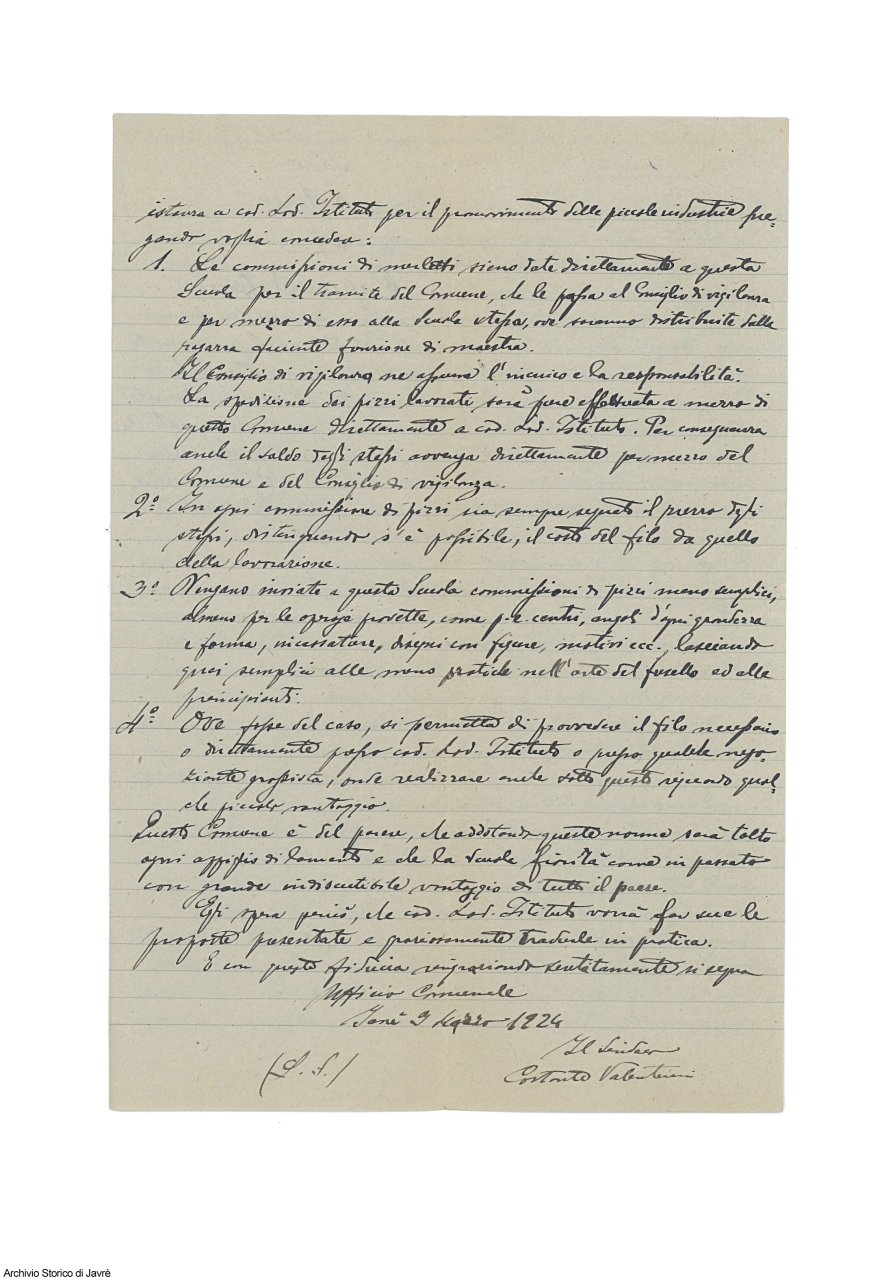 istanza a cod. Lod. Istituto per il promovimento delle piccole industrie pre-
gando voglia concedere:
1. Le commissioni di merletti sieno date direttamente a questa
Scuola per il tramite del Comune, che le passa al Consiglio di vigilanza
e per mezzo di esso alla Scuola stessa, ove saranno distribuite dalla
ragazza facente funzione di maestra.
Il Consiglio di vigilanza ne assume l'incarico e la responsabilità.
La spedizione dei pizzi lavorati sarà pure effettuata a mezzo di
questo Comune direttamente a cod. Lod. Istituto. Per conseguenza
anche il saldo degli stessi avvenga direttamente per mezzo del
Comune e del Consiglio di vigilanza.
2º In ogni commissione di pizzi sia sempre segnato il prezzo degli
stessi, distinguendo s'è possibile, il costo del filo da quello
della lavorazione.
3º Vengano inviate a questa Scuola commissioni di pizzi meno semplici,
almeno per le operaje provette, come p.e. centri, angoli d'ogni grandezza
e forma, incassature, disegni con figure, motivi ecc., lasciando
quei semplici alle meno pratiche nell'arte del fusello ed alle
principianti.
4º Ove fosse del caso, si permetta di provvedere il filo necessario
o direttamente presso cod. Lod. Istituto o presso qualche nego-
ziante grossista, onde realizzare anche sotto questo riguardo qual-
che piccolo vantaggio.
Questo Comune è del parere, che addotando queste norme sarà tolto
ogni appiglio di lamenti e che la Scuola fiorirà come in passato
con grande indiscutibile vantaggio di tutto il paese.
Egli spera perciò, che cod. Lod. Istituto vorrà far sue le
proposte presentate e graziosamente tradurle in pratica.
E con questa fiducia ringraziando sentitamente si segna
Ufficio Comunale
Javrè 9 Marzo 1924
Il Sindaco
(L. S.)
Costante Valentini
Archivio Storico di Javrè